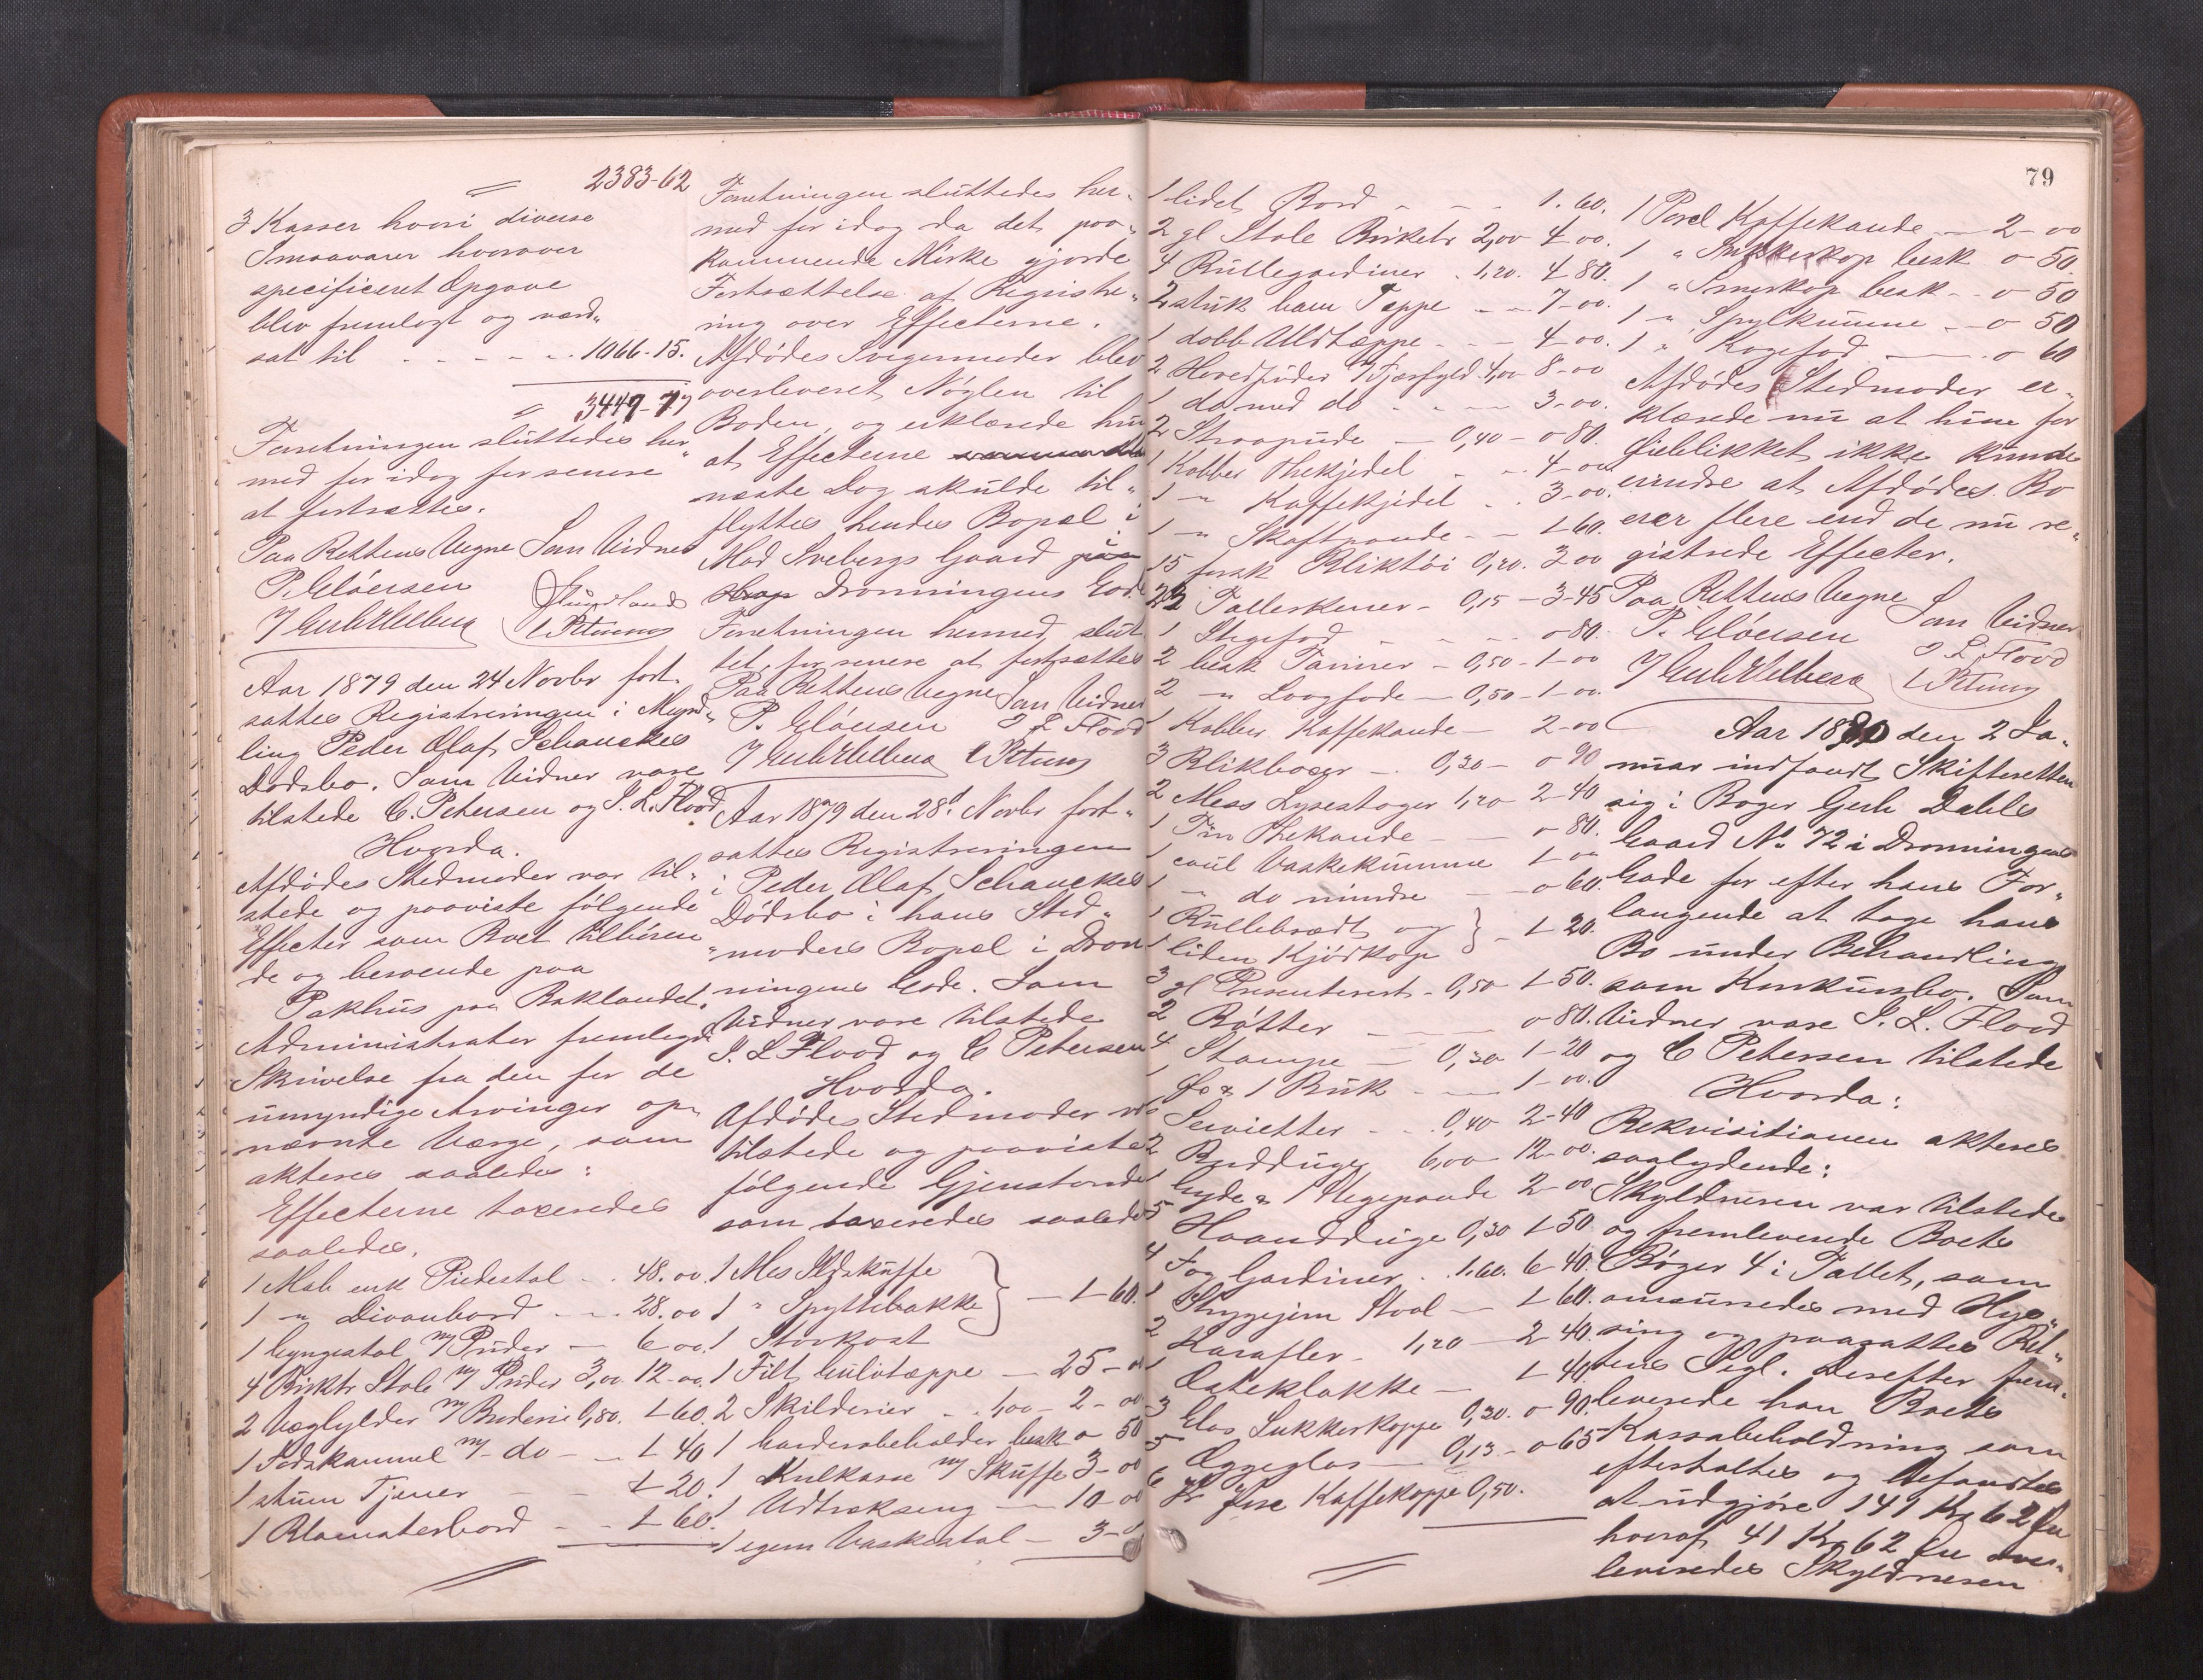 2383-62
3 Kasser hvori diverse
Smaavarer hvorover
specificeret Opgave
blev fremlagt og værd„
sat til - - - - - 1066-15.
3449-77
Forretningen sluttedes her„
med for idag for senere
at fortsættes.
Paa Rettens Vegne Som Vidner
P. Clöersen
C Petersen
Aar 1879 den 24 Novbr fort„
sattes Registreringen i Mynd„
ling Peder Olaf Schanckes
Dødsbo. Som Vidner vare
tilstede C. Petersen og J. L. Flood
Hvorda.
Afdødes Stedmoder var til„
stede og paaviste følgende
Effecter som Boet tilhøren„
de og beroende paa
Pakhus paa Baklandet.
Administrator fremlagde
Skrivelse fra den for de
umyndige Arvinger op„
nævnte Værge, som
akteres saaledes:
Effecterne taxeredes
saaledes.
1 Mah enk Piedestal - . 48. 00
1 „ Divanbord - - . 28. 00
1 Gyngestol m/ Puder - 6 00
4 Birktr Stole m/ Puder 3,00 12-00
2 Væghylder m/ Broderie 0,80. 1-60
1 Fodskammel m/ do - - 1 40
1 stum Tjener - - 1 20
1 Blomsterbord - - 1-60
Forretningen sluttedes her„
med for idag da det paa„
kommende Mørke gjorde
Fortsættelse af Registre„
ring over Effecterne.
Afdødes Svigermoder blev
overleveret Nøglen til
Boden, og erklærede hun
at Effecterne
næste Dag skulde til„
flyttes hendes Bopæl i
Mad Svebergs Gaard
Dronningens Gade
Forretningen hermed slut„
tet, for senere at fortsættes
Paa Rettens Vegne Som Vidner
P. Clöersen J L Flood
C Petersen
Aar 1879 den 28d Novbr fort„
sattes Registreringen
i Peder Olaf Schanckes
Dødsbo i hans Sted„
moders Bopæl i Dron„
ningens Gade. Som
Vidner vare tilstede
J. L Flood og C Petersen
Hvorda.
Afdødes Stedmoder var
tilstede og paaviste
følgende Gjenstande
som taxeredes saaledes
1 Mes Ildskuffe
1 „ Spyttebakke - 1-60.
1 Stovkost
1 Filt Gulvtæppe - 25-00
2 Skilderier - . 1,00 - 2-00
1 Garderobeholder besk 0 50
1 Kulkasse m/ Skuffe 3-00
1 Udtrækseng - 10-00
1 egem Vaskestol - 3-
79
1 lidet Bord - - - 1. 60.
2 gl Stole Birketr 2,00 4 00.
4 Rullegardiner . 1,20. 4 80.
2 stük ham Tæppe - - 7-00.
1 dobb Uldtæppe - - - 4-00.
2 Hovedpuder m/Fjærfyld. 4,00 8-00
1 do med do - - - 3-00.
2 Straapude - 0,40 - 0 80.
1 Kobber Thekjedel - . 4-00
1 „ Kaffekjedel . . 3-00.
1 „ Skaftpande - - 1 60.
15 forsk Bliktøi 0,20. 3 00
23 Tallerkener - 0,15 - 3-45
1 Stegefad - - - - 0 80.
2 besk Tariner - 0,50 - 1-00
2 „ Laagfade - 0,50 - 1-00.
1 Kobber Kaffekande - 2-00
3 Blikboxer - . 0,30 - 0 90
2 Mess Lysestager 1,20 2-40
1 Tin Thekande - - 0 80.
1 emil Vaskekumme 1-00
1 „ do mindre - - 0 60.
1 Kullebrædt og
1 liden Kjödkop - 1 20.
3 gl Presenterbr - 0,50 1-50.
2 Bøtter - - 0 80.
4 Stampe - 0,30 1-20
1 Øx & 1 Buk - - 1-00.
6 Servietter - . 0,40 2-40
2 Bordduge 6,00 12-00.
1 Gryde & 1 Stegepande 2-00
5 Haandduge 0,30 1 50
4 Fag Gardiner . 1.60. 6 40.
1 Strygejern Staal - 1 60.
2 Karafler - 1,20 - 2 40.
1 Osteklokke - 1 40.
3 Glas Sukkerkoppe 0,30. 0 90.
5 Æggeglas - 0,13 - 0 65
6 pr fine Kaffekoppe 0,50.
1 Porcl Kaffekande - 2-00
1 „ Sukkerkop besk 0 50
1 „ Smørkop besk - - 0 50
1 „ Spylkumme - - 0 50
1 „ Kagefad - . 0 60
Afdødes Stedmoder er„
klærede nu at hun for
Øieblikket ikke kunde
erindre at Afdødes Bo
eier flere end de nu re„
gistrede Effecter.
Paa Rettens Vegne Som Vidner
P. Clöersen J L Flood
C Petersen
Aar 1880 den 2 Ja„
nuar indfandt Skifteretten
sig i Bager Gerh Dahls
Gaard No 72 i Dronningens
Gade for efter hans For„
langende at tage hans
Bo under Behandling
som Konkursbo. Som
Vidner vare J. L. Flood
og C Petersen tilstede
Hvorda:
Rekvisitionen akteres
saalydende:
Skyldneren var tilstede
og fremleverede Boets
Bøger 4 i Tallet, som
omsnøredes med Hys„
sing og paasattes Ret„
tens Segl. Derefter frem„
leverede han Boets
Kassabeholdning som
eftertaltes og befandtes
at udgjøre 141 Kr 62 Øre
hvoraf 41 Kr 62 Øre over„
leveredes Skyldneren